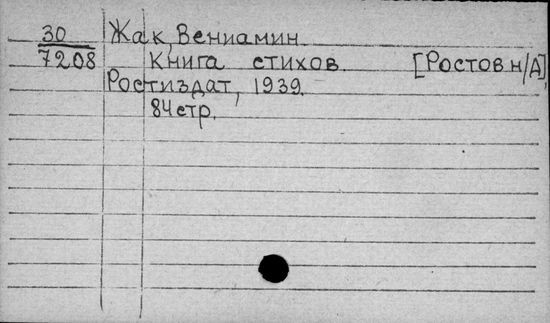 30 Жак, Вениамин.
7208 Книга стихов. [Ростов н/Д],
Ростиздат, 1939.
84стр.